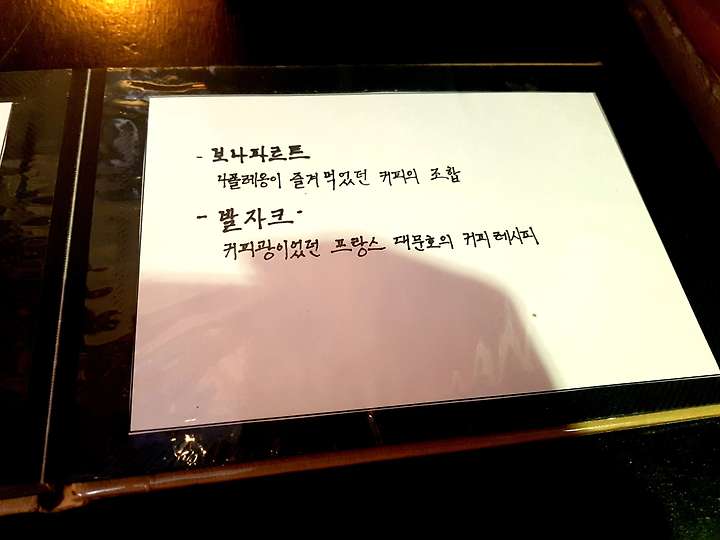 - 보나파르트
나폴레옹이 즐겨 먹었던 커피의 조합
- 발자크 -
커피광이었던 프랑스 대문호의 커피 레시피